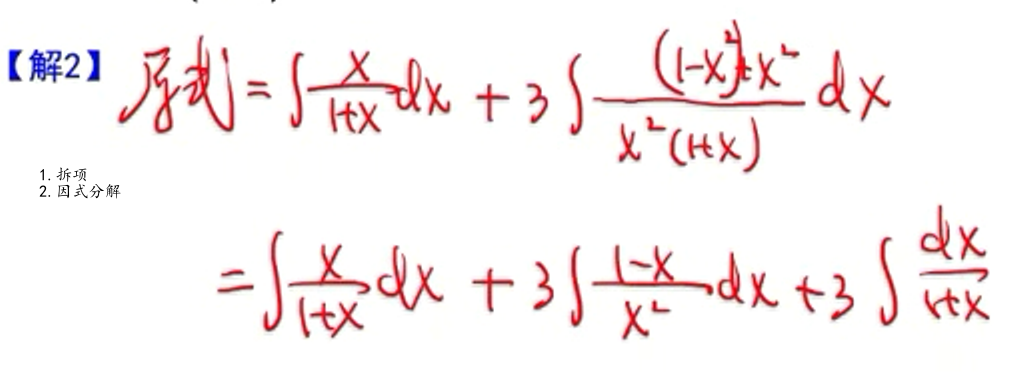 【解2】 原式 = ∫ x/(1+x) dx + 3 ∫ ((1-x²)+x²)/(x²(1+x)) dx
1. 拆项
2. 因式分解
= ∫ x/(1+x) dx + 3 ∫ (1-x)/x² dx + 3 ∫ dx/(1+x)